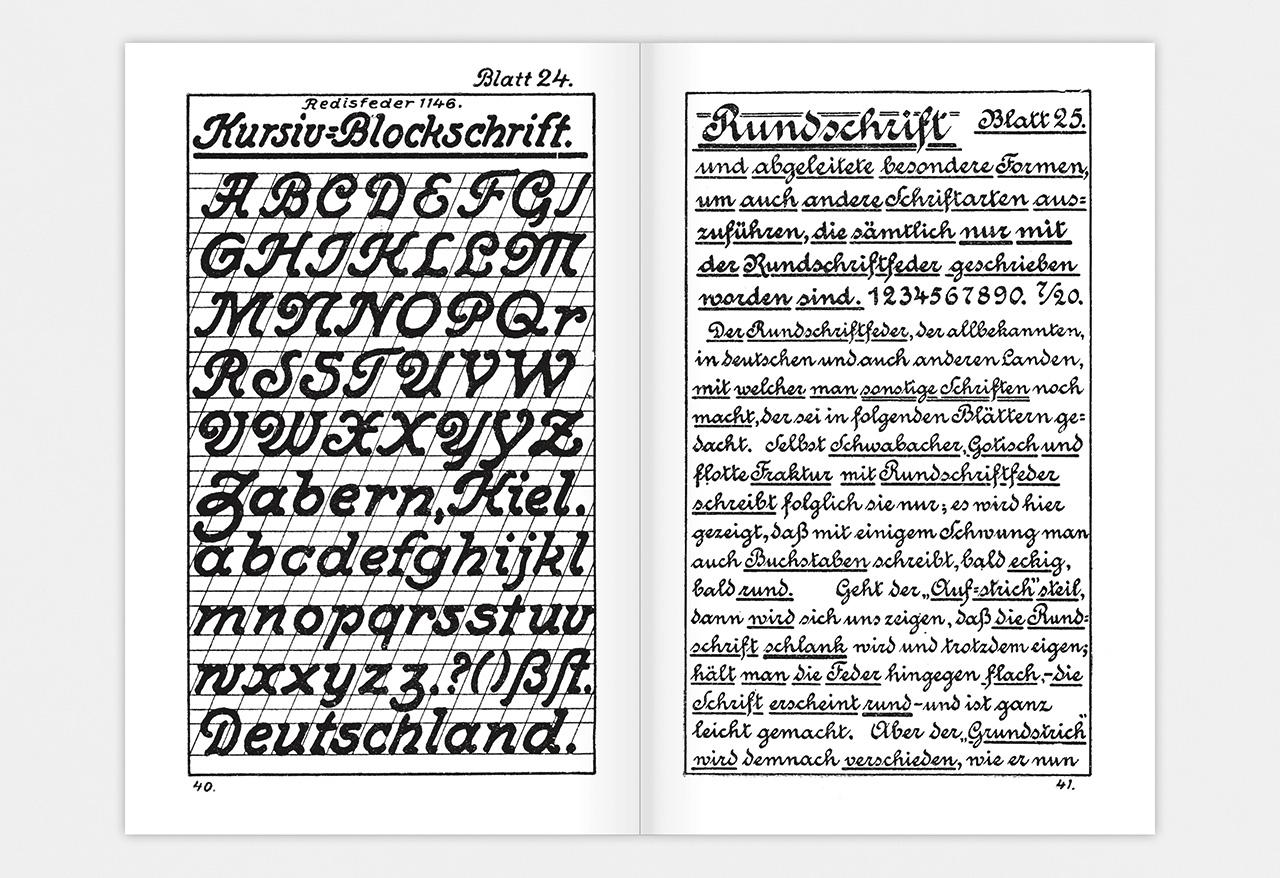 Blatt 24.
Redisfeder 1146.
Kursiv=Blockschrift.
A B C D E F G J
G H I K L L M
M N N O P Q r
R S S T U V W
V W X X Y Y Z
Zabern, Kiel.
abcdefghijkl
mnopqrsstuv
wxxyzz.?()ßſt.
Deutschland.
40.
Rundschrift Blatt 25.
und abgeleitete besondere Formen,
um auch andere Schriftarten aus=
zuführen, die sämtlich nur mit
der Rundschriftfeder geschrieben
worden sind. 1234567890. 7/20.
Der Rundschriftfeder, der allbekannten,
in deutschen und auch anderen Landen,
mit welcher man sonstige Schriften noch
macht, der sei in folgenden Blättern ge=
dacht. Selbst Schwabacher, Gotisch und
flotte Fraktur mit Rundschriftfeder
schreibt folglich sie nur; es wird hier
gezeigt, daß mit einigem Schwung man
auch Buchstaben schreibt, bald eckig,
bald rund. Geht der „Auf=strich" steil,
dann wird sich uns zeigen, daß die Rund=
schrift schlank wird und trotzdem eigen;
hält man die Feder hingegen flach,-die
Schrift erscheint rund-und ist ganz
leicht gemacht. Aber der „Grundstrich"
wird demnach verschieden, wie er nun
41.